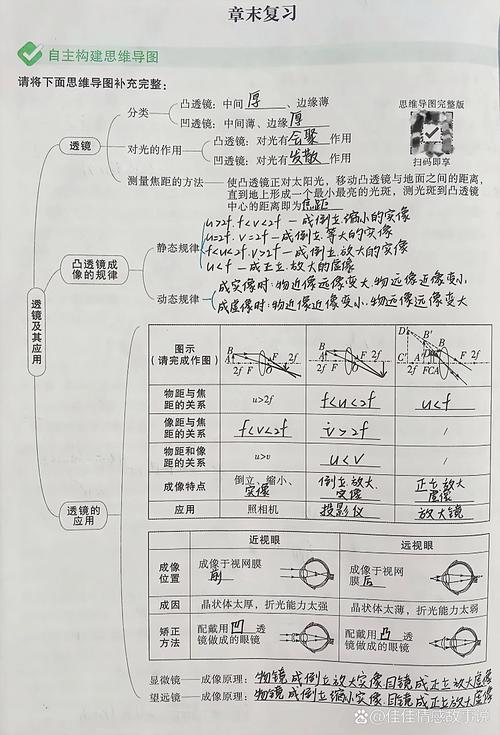 章末复习
自主构建思维导图
请将下面思维导图补充完整:
思维导图完整版
扫码即享
透镜及其应用
透镜
分类
凸透镜:中间厚、边缘薄
凹透镜:中间薄、边缘厚
对光的作用
凸透镜:对光有会聚作用
凹透镜:对光有发散作用
测量焦距的方法
使凸透镜正对太阳光,移动凸透镜与地面之间的距离,
直到地上形成一个最小最亮的光斑,测光斑到凸透镜
中心的距离即为焦距
凸透镜成像的规律
静态规律
u>2f.f<v<2f—成倒立缩小的实像
u=2f.v=2f—成倒立等大的实像
f<u<2f.v>2f—成倒立放大的实像
u<f—成正立放大的虚像
动态规律
成实像时:物近像远像变大.物远像近像变小.
成虚像时:物近像近像变小.物远像远像变大
透镜的应用
图示(请完成作图)
B A 2f F O F 2f
B A 2f F O F 2f
D' B' D B C' A' FCA O F
物距与焦距的关系 u>2f f<u<2f u<f
像距与焦距的关系 f<v<2f v>2f /
物距和像距的关系 u>v u<v /
成像特点 倒立、缩小、实像 倒立放大实像 正立放大虚像
应用 照相机 投影仪 放大镜
近视眼 远视眼
成像位置 成像于视网膜前 成像于视网膜后
成因 晶状体太厚,折光能力太强 晶状体太薄,折光能力太弱
矫正方法 配戴用凹透镜做成的眼镜 配戴用凸透镜做成的眼镜
显微镜—成像原理:物镜成倒立放大实像目镜成正立放大虚像
望远镜—成像原理:物镜成倒立缩小实像目镜成正立放大虚像
@佳佳情感故事说